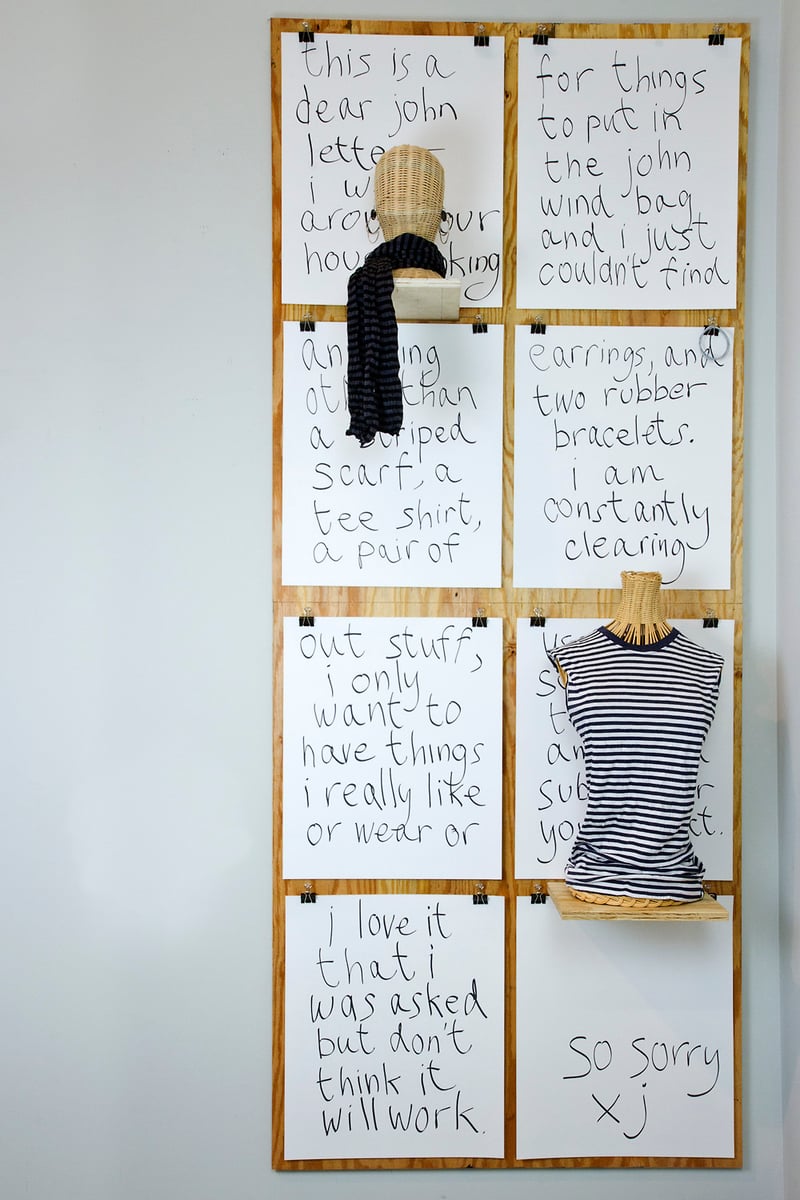 this is a
dear john
letter –
i
around
house looking
for things
to put in
the john
wind bag
and i just
couldn't find
anything
other than
a striped
scarf, a
tee shirt,
a pair of
earrings, and
two rubber
bracelets.
i am
constantly
clearing
out stuff,
i only
want to
have things
i really like
or wear or
i love it
that i
was asked
but don't
think it
will work.
so sorry
x j